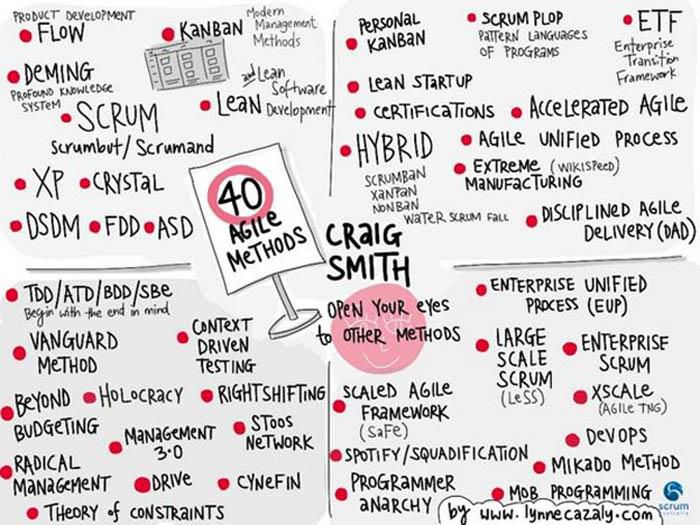 PRODUCT DEVELOPMENT
FLOW
KANBAN
Modern
Management
Methods
DEMING
PROFOUND KNOWLEDGE
SYSTEM
and Lean
Software
LEAN Development
SCRUM
Scrumbut/Scrumand
XP
CRYSTAL
DSDM
FDD
ASD
40
AGILE
METHODS
CRAIG
SMITH
OPEN YOUR EYES
to OTHER METHODS
PERSONAL
KANBAN
SCRUM PLOP
PATTERN LANGUAGES
OF PROGRAMS
ETF
Enterprise
Transition
Framework
LEAN STARTUP
CERTIFICATIONS
ACCELERATED AGILE
HYBRID
SCRUMBAN
XANPAN
NONBAN
WATER SCRUM FALL
AGILE UNIFIED PROCESS
EXTREME (WIKISPEED)
MANUFACTURING
DISCIPLINED AGILE
DELIVERY (DAD)
TDD/ATD/BDD/SBE
Begin with the end in mind
VANGUARD
METHOD
CONTEXT
DRIVEN
TESTING
BEYOND
BUDGETING
HOLOCRACY
RIGHTSHIFTING
MANAGEMENT
3.0
STOOS
NETWORK
RADICAL
MANAGEMENT
DRIVE
CYNEFIN
THEORY of CONSTRAINTS
ENTERPRISE UNIFIED
PROCESS (EUP)
LARGE
SCALE
SCRUM
(LeSS)
ENTERPRISE
SCRUM
XSCALE
(AGILE TNG)
SCALED AGILE
FRAMEWORK
(SaFe)
DEVOPS
SPOTIFY/SQUADIFICATION
MIKADO METHOD
PROGRAMMER
ANARCHY
MOB PROGRAMMING
by www.lynnecazaly.com
scrum